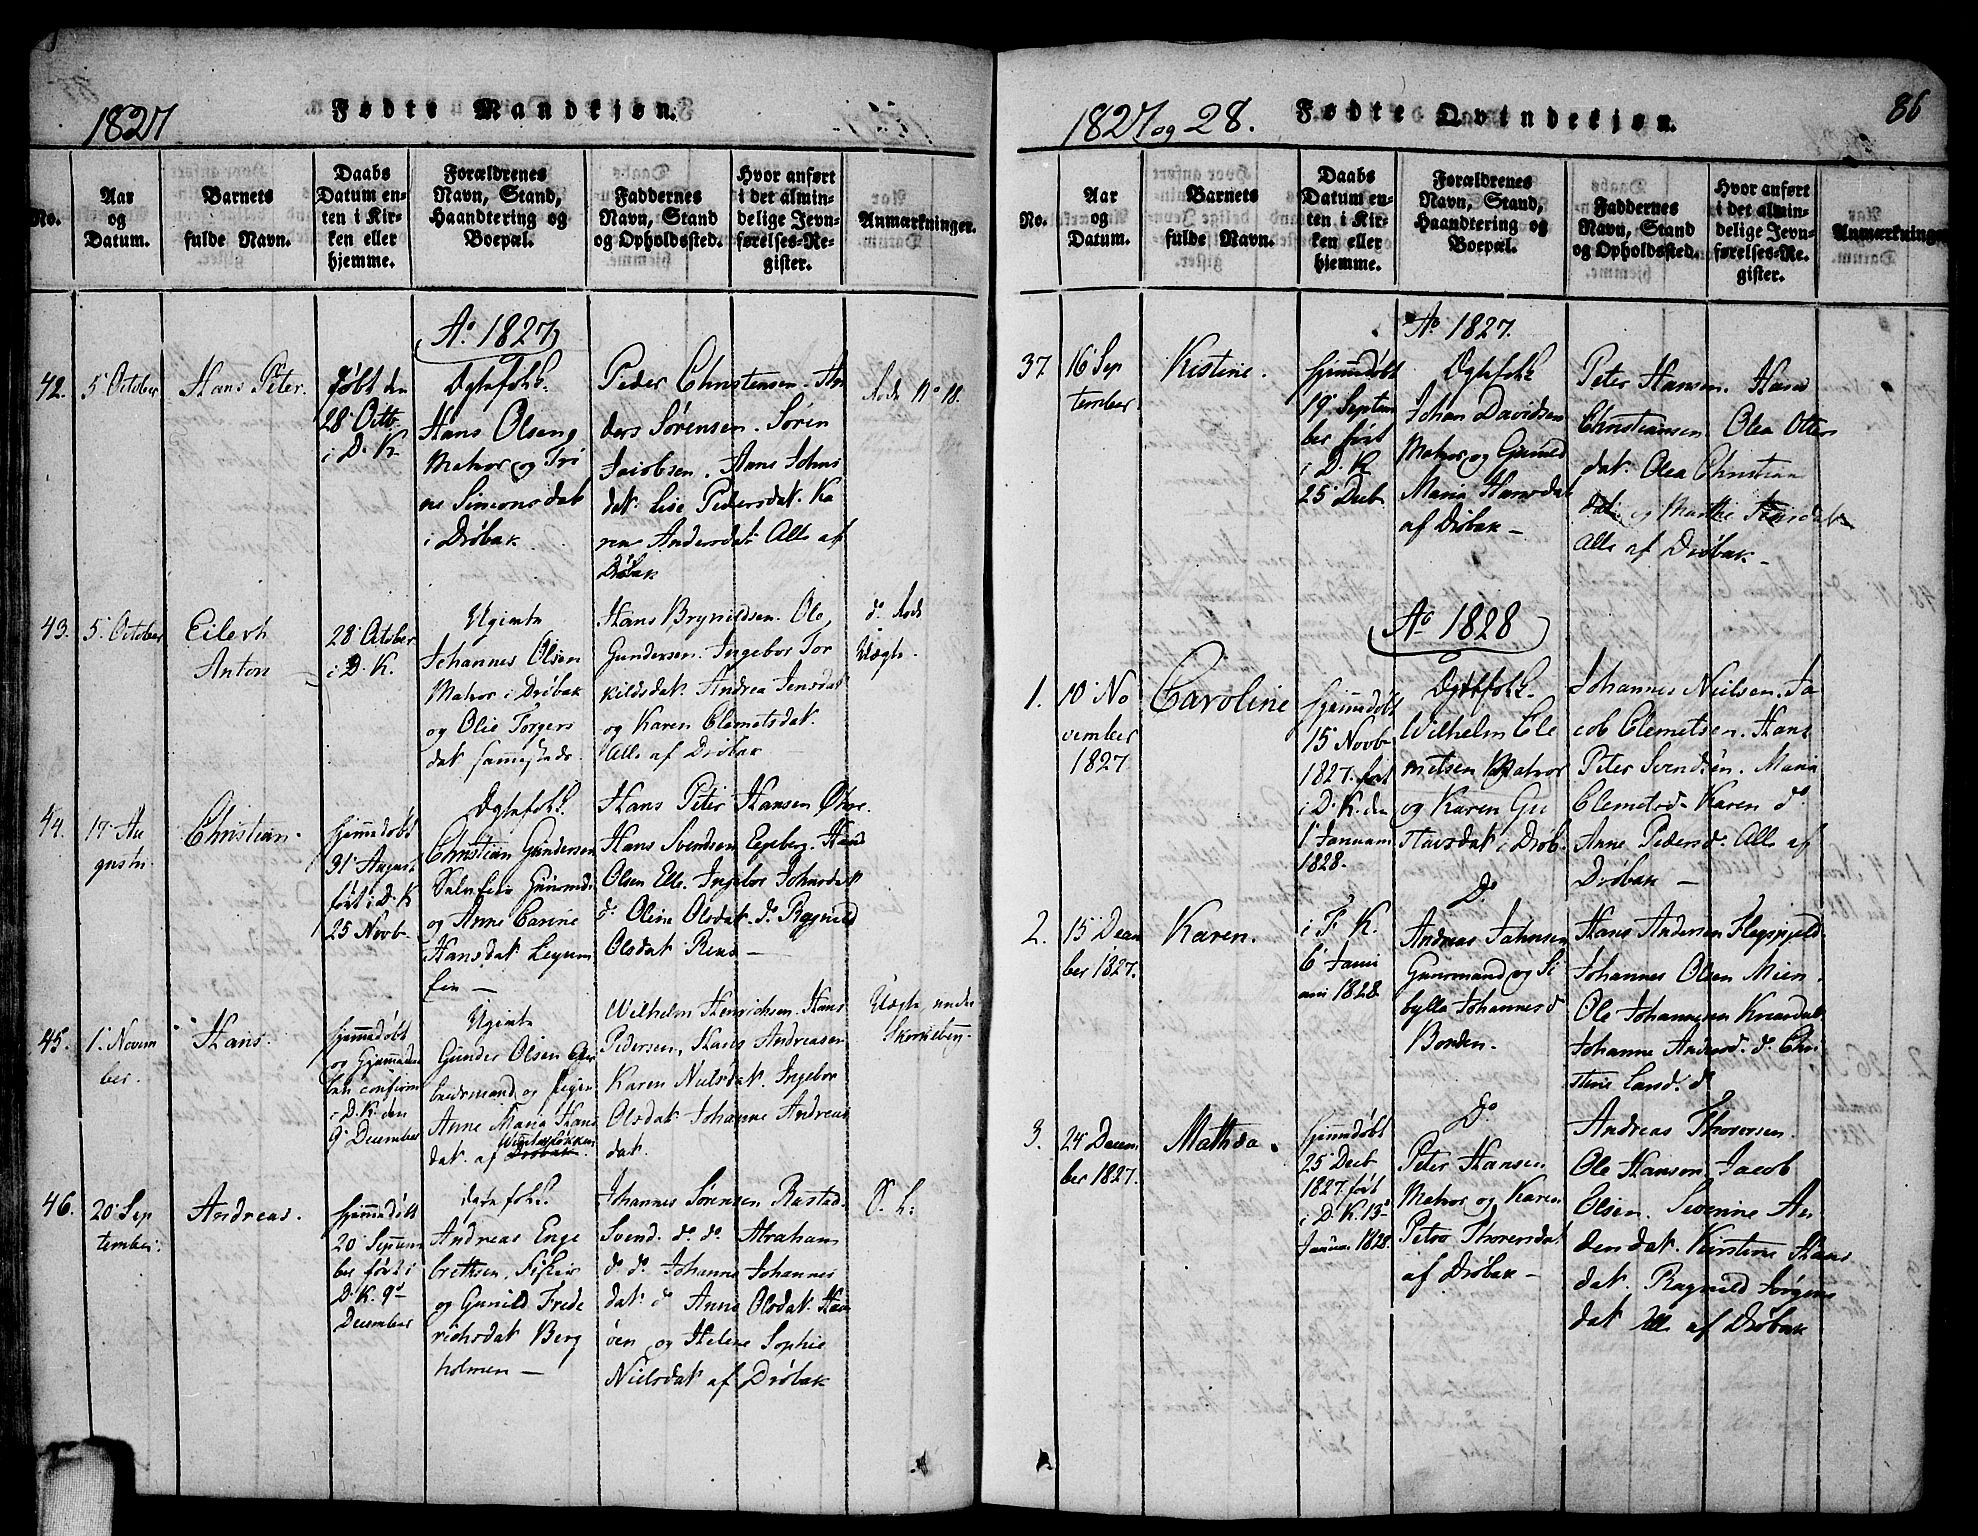 1827
Fødte Mandkjøn.
No.
Aar
og
Datum.
Barnets
fulde Navn.
Daabs
Datum en-
ten i Kir-
ken eller
hjemme.
Forældrenes
Navn, Stand,
Haandtering og
Boepæl.
Faddernes
Navn, Stand
og Opholdssted.
Hvor anført
i det almin-
delige Jevn-
førelses-Re-
gister.
Anmærkninger.
Ao 1827
42.
5 October
Hans Peter.
døbt den
28 Octb.
i D. K.
Ægtefolk.
Hans Olsen
Matros og Tri
ne Simonsdat
i Drøbak.
Peder Christensen. An
ders Sørensen. Søren
Jacobsen. Anne Johns
dat. Lise Pedersdat. Ka
ren Andersdat Alle af
Drøbak
No 18.
43.
5 October
Eilert
Anton
28 October
i D. K.
Ugivte
Johannes Olsen
Matros i Drøbak
og Olie Torgers
dat sammesteds.
Hans Brynildsen. Ole
Gundersen. Ingebor Tor
kildsdat. Andrea Jensdat
og Karen Clemetsdat.
Alle af Drøbak
do
Uægte.
44.
17 Au
gusti
Christian.
hjemmedøbt
31 August
ført i D. K
25 Novb
Ægtefolk.
Christian Gundersen
og Anne Carine
Hansdat
Hans Peter Hansen
Hans Svendsen Egeberg. Hans
Olsen Elle. Ingebor Johnsdat
do Oline Olsdat. do Ragnild
Olsdat
45.
1 Novem
ber.
Hans.
hjemmedøbt
i D. K. den
9 December
Ugivte
Gunder Olsen Ar
beidsmand og Pigen
Anne Maria Hans
dat. af Drøbak.
Wilhelm Henrichsen. Hans
Pedersen, Hans Andreasen
Karen Nielsdat. Ingebor
Olsdat Johanne Andreas
dat.
Uægte, under
46.
20 Sep
tember.
Andreas.
hjemmedøbt
20 Septem
ber ført i
D. K. 9
December
Ægtefolk.
Andreas Enge
brethsen, Fisker
og Gunild Frede
richsdat Berg
holmen
Johannes Sørensen
Svend. do do. Abraham
do do. Johanne Johannes
dat do Anne Olsdat
øen og Helene Sophie
Nielsdat af Drøbak
1827 og 28.
Fødte Qvindekjøn.
86
No.
Aar
og
Datum.
Barnets
fulde Navn.
Daabs
Datum en-
ten i Kir-
ken eller
hjemme.
Forældrenes
Navn, Stand,
Haandtering og
Boepæl.
Faddernes
Navn, Stand
og Opholdssted.
Hvor anført
i det almin-
delige Jevn-
førelses-Re-
gister.
Anmærkninger
Ao 1827.
37.
16 Sep
tember.
Kistine.
hjemmedøbt
19 Septem
ber ført
i D. K
25 Decb.
Ægtefolk
Johan Davidsen
Matros og Gunild
Maria Hansdat
af Drøbak
Peter Hansen. Hans
Christiansen Olea Otters
dat. Olea Christian
dat. og Marthe
Alle af Drøbak
Ao 1828
1.
10 No
vember
1827
Caroline
hjemmedøbt
15 Novb
1827. ført
i D. K. den
1 Januari
1828.
Ægtefolk.
Wilhelm Cle
metsen Matros
og Karen Gu
stavsdat i Drøb.
Johannes Nielsen. Ja
cob Clemetsen. Hans
Peter Svendsen. Maria
Clemetsd. Karen do.
Anne Pedersd. Alle af
Drøbak
2.
15 Decem
ber 1827.
Karen.
i F. K.
6 Janu
ari 1828
Do
Andreas Johnsen
og Si
bylla Johannesd
Hans Andersen
Johannes Olsen
Ole Johannesen
Johanne Andersd. do Chri
stine
3.
24 Decem
ber 1827.
Mathea.
hjemmedøbt
25 Decb
1827. ført
i D. K. 13
Januar. 1828.
Do
Peter Hansen
Matros og Karen
Petra Thorensdat
af Drøbak
Andreas Thorersen.
Ole Hansen Jacob
Olsen. Severine An
dersdat. Kirstine Hans
dat. Ragnild Jørgens
dat Alle af Drøbak